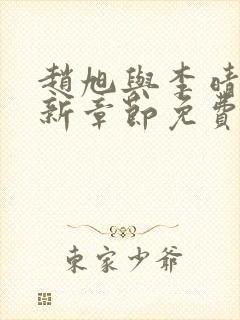 趙旭與李晴
新章節免費
東家少爺